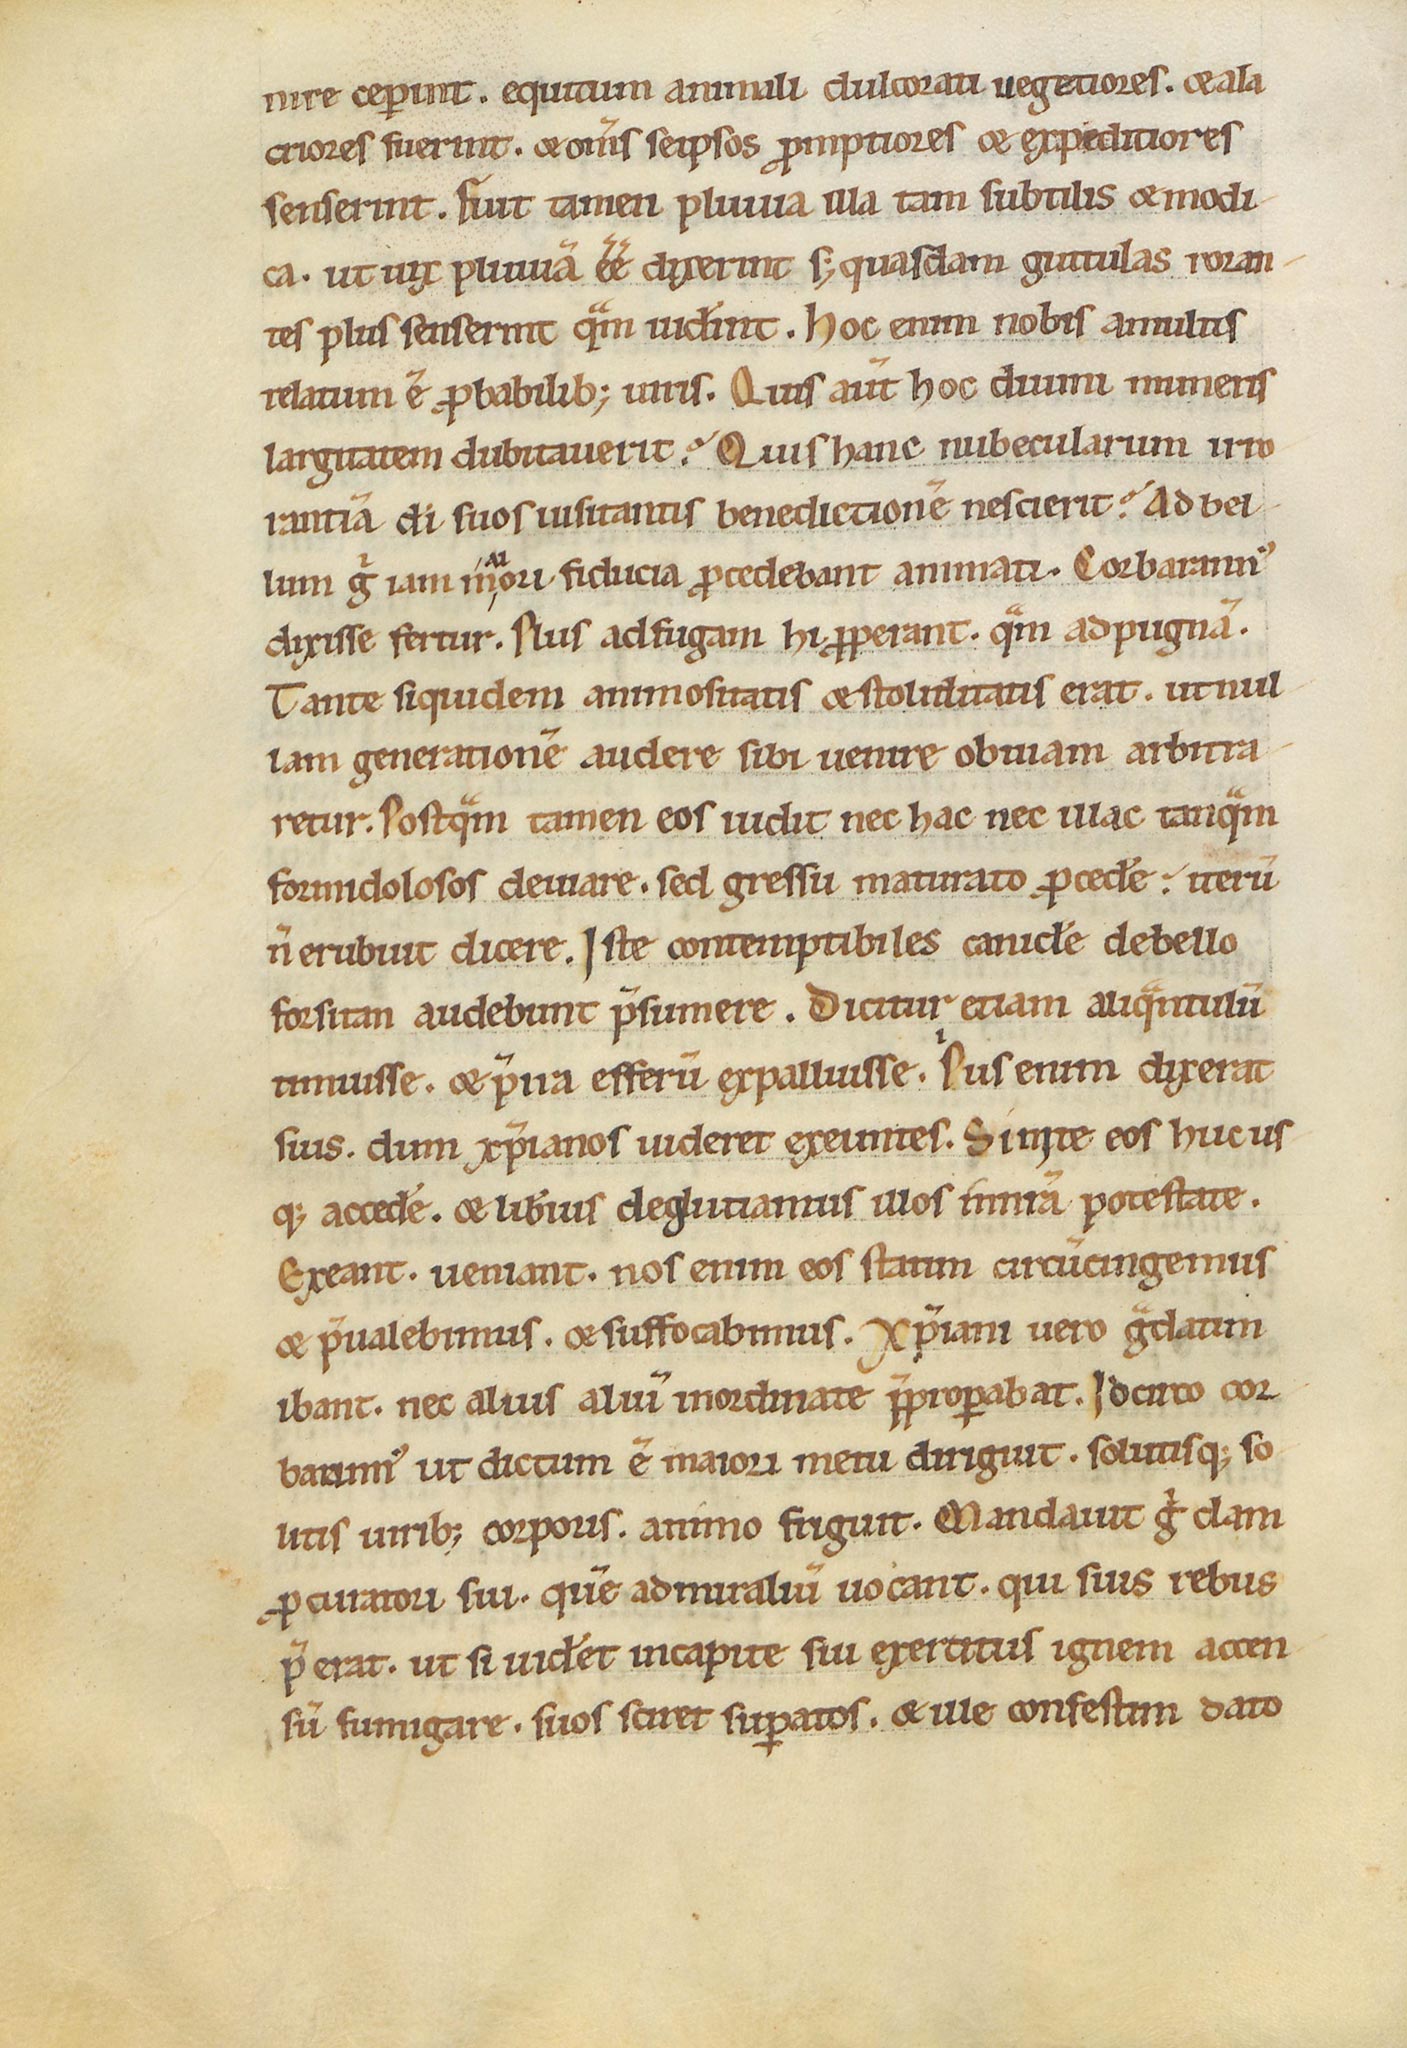 nire ceꝑint. equitum animali dulcorati uegetiores. ⁊ ala
criores fuerint. ⁊ om̄s seipsos ꝓmptiores ⁊ expeditiores
senserint. Fuit tamen pluuia illa tam subtilis ⁊ modi
ca. ut uix pluuiā ēē dixerint s; quasdam guttulas roran
tes plus senserint qᵃm uid̄int. Hoc enim nobis amultis
relatum ē ꝓbabilib; uiris. Quis aut̄ hoc diuini muneris
largitatem dubitauerit? Quis hanc nubecularum irro
rantiā dī suos uisitantis benedictionē nescierit? Ad bel
lum gͥ iam maiori fiducia ꝓcedebant animati. Corbarannꝰ
dixisse fertur. Plus ad fugam hi ꝓꝑerant. qᵃm ad pugnā.
Tante siquidem animositatis ⁊ stoliditatis erat. ut nul
lam generationē audere sibi uenire obuiam arbitra
retur. Postqᵃm tamen eos uidit nec hac nec illac tanqᵃm
formidolosos deuiare. sed gressu maturato ꝓced̄e: iterū
n̄ erubuit dicere. Iste contemptibiles canicl̄e de bello
forsitan audebunt p̄sumere. Dicitur etiam aliqᵃntulū
timuisse. ⁊ p̄ ira efferū expalluisse. Pͥus enim dixerat
suis. dum xp̄ianos uideret exeuntes. Sinite eos huc us
q; acced̄e. ⁊ lib̄ius deglutiamus illos in nr̄a potestate.
Exeant. ueniant. nos enim eos statim circūcingemus
⁊ p̄ualebimus. ⁊ suffocabimus. Xp̄iani uero gᵃdatim
ibant. nec alius aliū inordinate p̄proꝑabat. Id circo cor
barannꝰ ut dictum ē maiori metu diriguit. solutisq; so
litis uirib; corporis. animo friguit. Mandauit gͥ clam
ꝓcuratori sui. quē admiraliū uocant. qui suis rebus
p̄ erat. ut si uid̄et in capite sui exercitus ignem accen
sū fumigare. suos sciret suꝑatos. ⁊ ille confestim dato